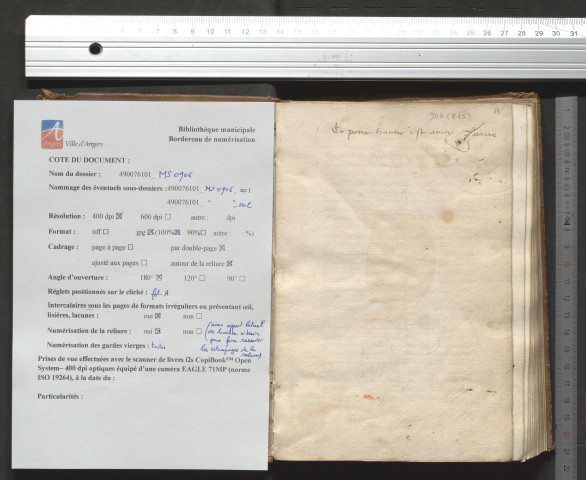 Bibliothèque municipale
Bordereau de numérisation
Angers Ville d'Angers
COTE DU DOCUMENT :
Nom du dossier : 490076101_ MS 0906
Nommage des éventuels sous-dossiers : 490076101_ MS 0906_001
490076101_ " "_002
Résolution : 400 dpi ☒ 600 dpi ☐ autre : dpi
Format : tiff ☐ jpg ☒ (100%☒ 90%☐ autre : %)
Cadrage : page à page ☐ par double-page ☒
ajusté aux pages ☐ autour de la reliure ☒
Angle d'ouverture : 180° ☒ 120° ☐ 90° ☐
Réglets positionnés sur le cliché : fol. A
Intercalaires sous les pages de formats irréguliers ou présentant œil,
lisières, lacunes : oui ☒ non ☐
Numérisation de la reliure : oui ☒ non ☐
(avec
pour faire ressortir
les estampages de la
reliure)
Numérisation des gardes vierges : toutes
Prises de vue effectuées avec le scanner de livres i2s CopiBook™ Open
System– 400 dpi optiques équipé d'une caméra EAGLE 71MP (norme
ISO 19264), à la date du :
Particularités :
906 (825) A